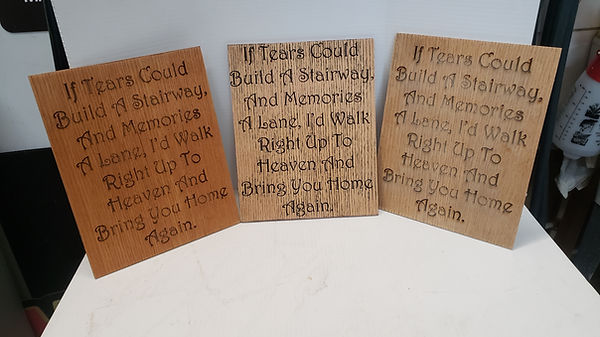 If Tears Could
Build A Stairway,
And Memories
A Lane, I'd Walk
Right Up To
Heaven And
Bring You Home
Again.
If Tears Could
Build A Stairway,
And Memories
A Lane, I'd Walk
Right Up To
Heaven And
Bring You Home
Again.
If Tears Could
Build A Stairway,
And Memories
A Lane, I'd Walk
Right Up To
Heaven And
Bring You Home
Again.